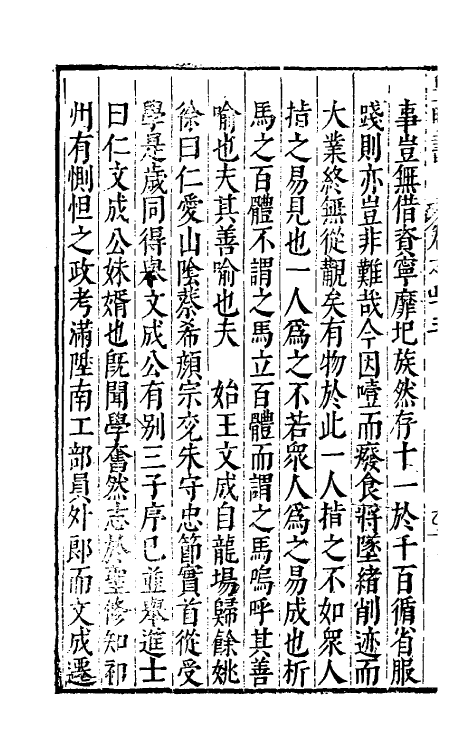 事豈無借資寧靡圯族然存十一於千百循省服
踐則亦豈非難哉今因噎而廢食將墜緒削迹而
大業終無從觀矣有物於此一人指之不如衆人
指之易見也一人爲之不若衆人爲之易成也析
馬之百體不謂之馬立百體而謂之馬嗚呼其善
喻也夫其善喻也夫　始王文成自龍場歸餘姚
徐曰仁愛山陰蔡希顔宗兖朱守忠節實首從受
學是歲同得舉文成公有别三子序已並舉進士
曰仁文成公妹婿也旣聞學奮然志於聖修知祁
州有惻怛之政考滿陞南工部員外郎而文成遷